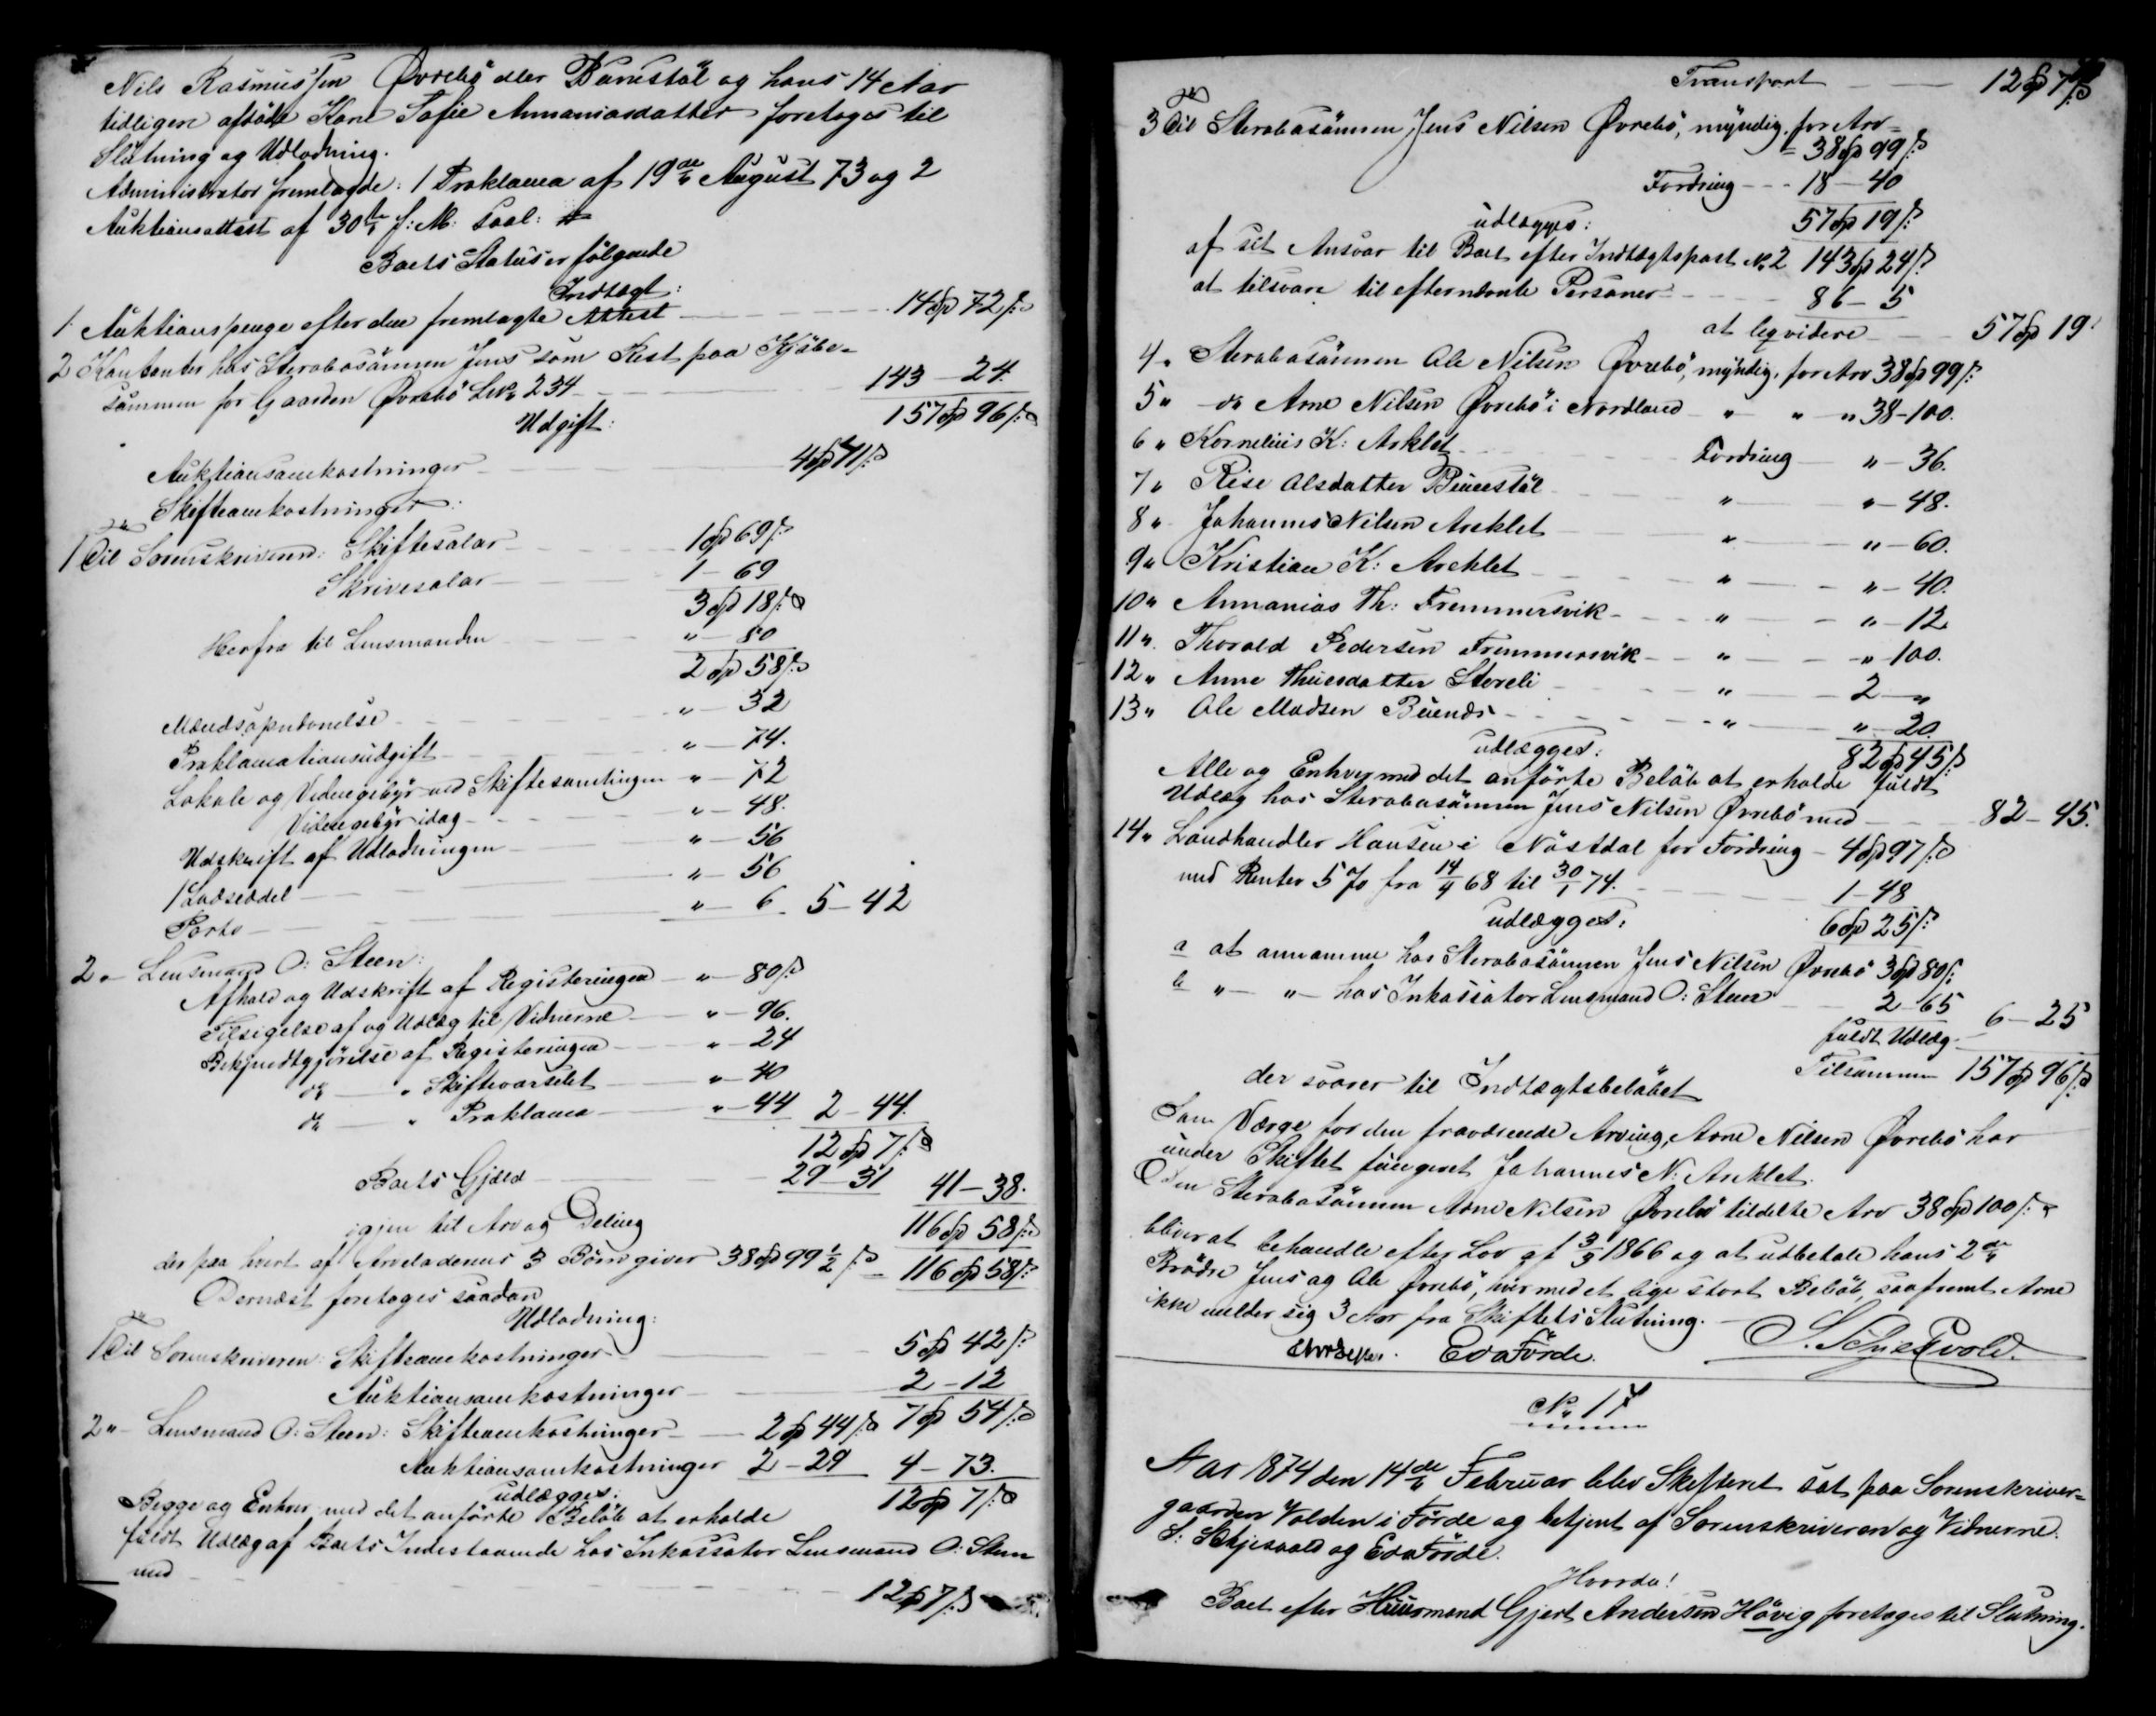 Nils Rasmussen Øvrebö eller Bunestöl og hans 14 Aar
tidligere afdöde Kone Sofie Annaniasdatter foretoges til
Slutning og Udlodning.
Administrator fremlagde: 1 Proklama af 19de August 73 og 2
Auktionsattest af 30te f: M: saal:
Boets Status er fölgende
Indtægt:
1 Auktionspenge efter den fremlagte Attest 14 Spd 72 ß
2 Kontanter hos Sterbosönnen Jens som Rest paa Kjöbe-
summen for Gaarden Øvrebö LNo 234 143 - 24.
157 Spd 96 ß
Udgift:
Auktionsomkostninger 4 Spd 41 ß
Skifteomkostninger:
1 Til Sorenskriveren: Skiftesalar 1 Spd 69 ß
Skrivesalar 1 - 69
3 Spd 18 ß
Herfra til Lensmanden " - 80
2 Spd 58 ß
Mændsopnævnelse " - 32
Proklamationsudgift " - 74.
Lokale og Vidnegebyr ved Skiftesamlingen " - 72
Vidnegebyr idag " - 48.
Udskrift af Udlodningen " - 56
1 Lodseddel " - 56
Porto " - 6 5 - 42
2 " Lensmand O: Steen:
Afhold og Udskrift af Registeringen " - 80 ß
Tilsigelse af og Udlæg til Vidnerne " - 96.
Bekjendtgjörelse af Registeringen " - 24
do " Skiftevarselet " - 40
do " Proklama " - 44 2 - 44.
12 Spd 7 ß
Boets Gjæld 29 - 31 41 - 38.
igjen til Arv og Deling 116 Spd 58 ß
der paa hvert af Arveladernes 3 Börn giver 38 Spd 99 1/2 ß = 116 Spd 58 ß
Dernæst foretoges saadan
Udlodning:
1 Til Sorenskriveren: Skifteomkostninger 5 Spd 42 ß
Auktionsomkostninger 2 - 12
7 Spd 54 ß
2 " Lensmand O: Steen: Skifteomkostninger 2 Spd 44 ß
Auktionsomkostninger 2 - 29 4 - 73.
udlægges: 12 Spd 7 ß
Begge og Enhver med det anförte Belöb at erholde
fuldt Udlæg af Boets Indestaaende hos Inkassator Lensmand O: Steen
med 12 Spd 7 ß
Transport 12 Spd 7 ß
3 Til Sterbosönnen Jens Nilsen Øvrebö, myndig, for Arv-
- 38 Spd 99 ß
Fordring - 18 - 40
udlægges: 57 Spd 19 ß
af sit Ansvar til Boet efter Indtægtspost No 2 143 Spd 24 ß
at tilsvare til efternævnte Personer 86 - 5
at leqvidere 57 Spd 19
4 " Sterbosönnen Ole Nilsen Øvrebö, myndig, for Arv 38 Spd 99 ß
5 " do Arne Nilsen Øvrebö i Nordland " " " 38 - 100.
6 " Kornelius K: Arklet Fordring " - 36.
7 " Rise Olsdatter Bunestöl " " - 48.
8 " Johannes Nilsen Arklet " " - 60.
9 " Kristian K: Arklet " " - 40.
10 " Annanias Th: Fremmersvik " " - 12
11 " Thorald Pedersen Fremmersvik " " - 100.
12 " Anne Thuesdatter Storeli " 2 - "
13 " Ole Madsen Buends " " - 20.
udlægges: 82 Spd 45 ß
Alle og Enhver med det anförte Belöb at erholde fuldt
Udlæg hos Sterbosönnen Jens Nilsen Øvrebö med 82 - 45.
14 " Landhandler Hansen i Nöstdal for Fordring 4 Spd 97 ß
med Renter 5 % fra 14/4 68 til 30/1 74. 1 - 48
udlægges: 6 Spd 25 ß
a at annamme hos Sterbosönnen Jens Nilsen Øvrebö 3 Spd 80 ß
b " - " - hos Inkassator Lensmand O: Steen 2 - 65
fuldt Udlæg 6 - 25
der svarer til Indtægtsbelöbet Tilsammen 157 Spd 96 ß
Som Værge for den fraværende Arving, Arne Nilsen Øvrebö har
under Skiftet fungeret Johannes N: Arklet.
Den Sterbosönnen Arne Nilsen Øvrebö tildelte Arv 38 Spd 100 ß
bliver at behandle efter Lov af 3/3 1866 og at udbetale hans 2de
Brödre Jens og Ole Øvrebö, hver med et lige stort Belöb, saafremt Arne
ikke melder sig 3 Aar fra Skiftets Slutning.
Eda Förde. S. Schjesvold.
No 17
Aar 1874 den 14de Februar blev Skifteret sat paa Sorenskriver-
gaarden Volden i Förde og betjent af Sorenskriveren og Vidnerne
S: Schjesvold og Eda Förde.
Hvorda!
Boet efter Huusmand Gjert Andersen Hövig foretoges til Slutning.